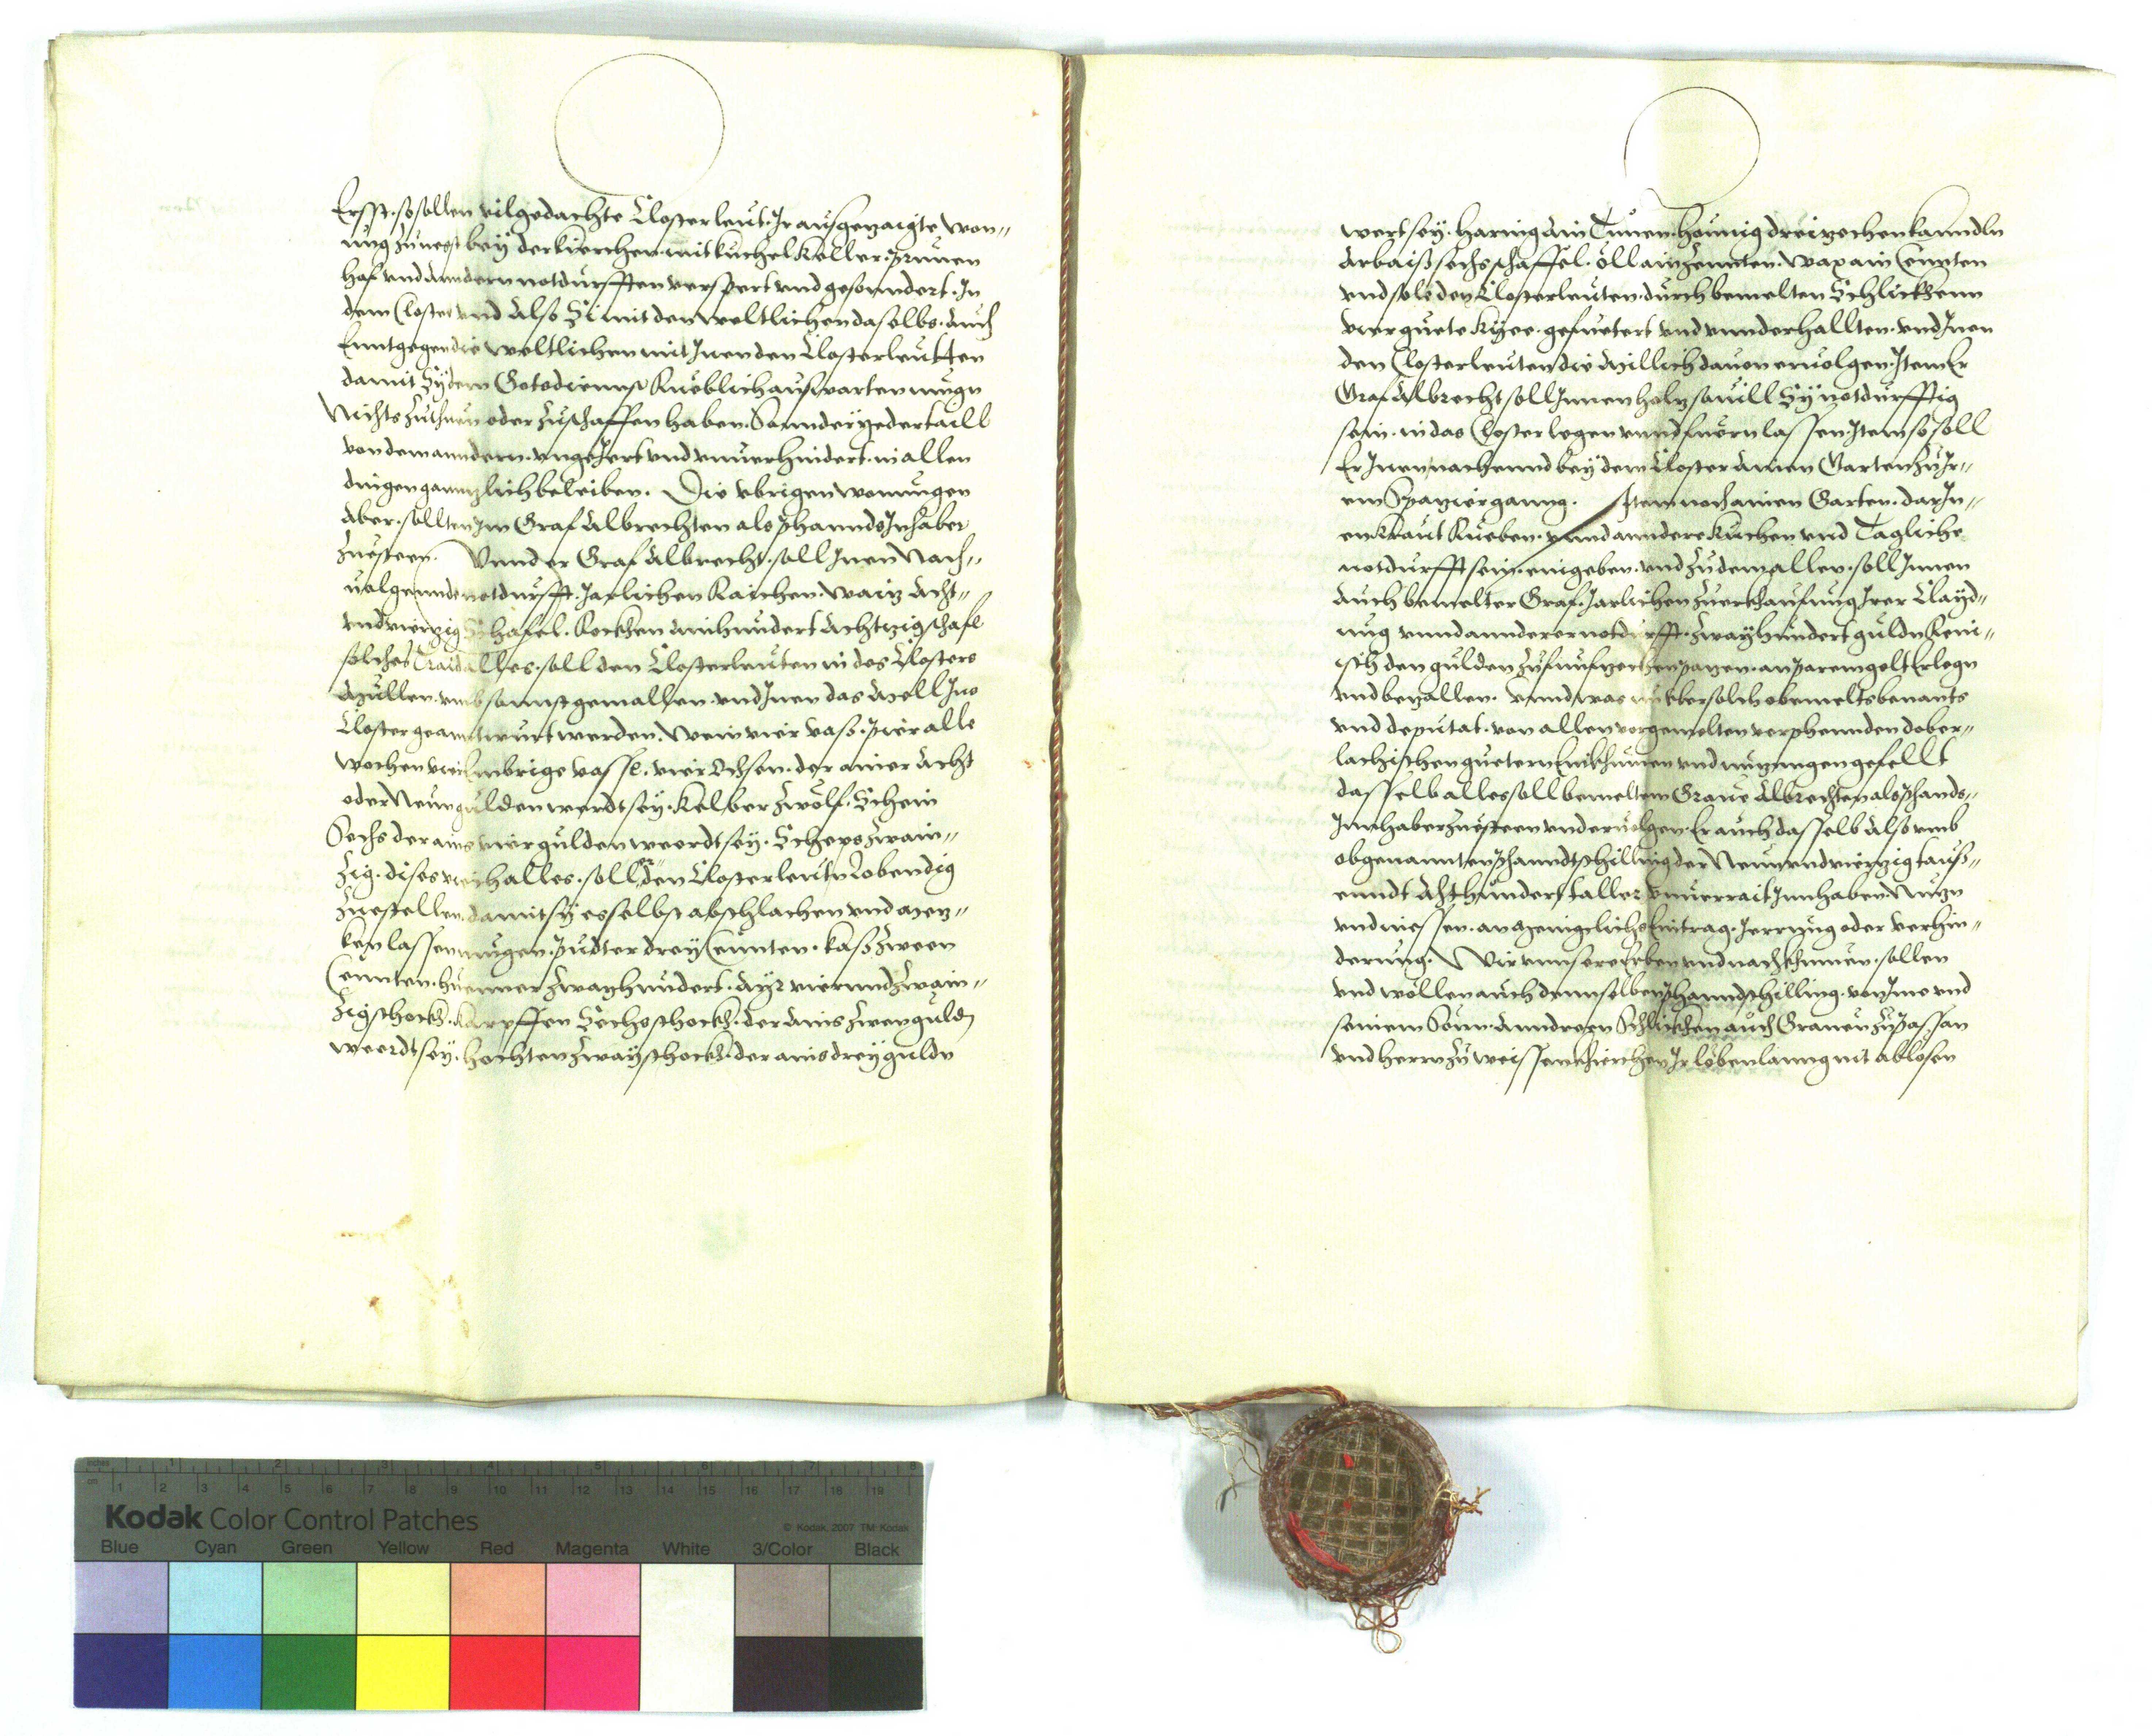 Ersst. so sollen vilgedachte Closterleut. Ir ausgezaigte won„
ung zunegst bey der kierchen. mit kuchel Keller. prunen
hof vnd anndern notdurfften versperrt vnd gesonndert. In
dem Closter vnd also Sy mit den weltlichen daselbs. auch
Enntgegen die weltlichen mit Inen den Closterleutten
damit Sy dem Gotsdiennst Rueblich auswarten mugn
Nichts zuthuen oder zuschaffen haben. Sonnder yeder taill
von dem anndern. vngeIert vnd vnuerhindert. in allen
dingen ganntzlich beleiben. Die vbrigen wonungen
aber. sollten Im Graf Albrechten als phannds Inhaber
zuesteen. Vnnd er Graf Albrecht. soll Inen Nach„
uolgennde notdurfft. Jarlichen Raichen. Waitz Acht„
vnduierzig Schafel. Rockhen ainhundert Achtzig schafl
solches Traid alles. soll den Closterleuten in des Closters
Mullen. vmb sonnst gemallen. vnd Inen das Mell Ins
Closter geanntwurt werden. Wein vier vass. Pier alle
wochen vier Embrige vassl. vier Ochsen. der ainer Acht
oder Neun gulden werdt sey. Kelber zwölf. Schein
Sechs der ains vier gulden weerdt sey. Scheps zwain„
zig. dises viech alles. soll er den Closterleutn Lebendig
zuestellen. damit sy es selbst abschlachen vnd Metz„
ken lassen mugen. Pudter drey Cennten. Kass zween
Cennten. huenner zwayhundert. Ayr vierundzwain„
zig schockh. Karpffen Sechs schockh. der ains zwen guldn
weerdt sey. hechten zway schockh. der ains drey guldn
wert sey. Haring ain Tunen. Hounig dreizechen kanndln
Arbaiss sechs schaffel. öll ain zennten. wax ain Cennten
vnd solle den Closterleuten. durch bemelten Schlickhenn
vier guete Kyee. gefuetert vnd vnnderhallten. vnd Inen
den Closterleuten die Millich dauon eruolgen. Item Er
Graf Albrecht soll Innen holtz souill Sy notdurfftig
sein. in das Closter legen vnnd fuern lassen. Item so soll
Er Inen nachennd bey dem Closter ainen Garten zu Ir„
em Spatziergang. Item noch ainen Garten. dar In„
en Kraut Rueben. vnnd anndere Kuchen vnd Tagliche
notdurfft sein. eingeben. vnd zu dem allen. soll Innen
auch bemelter Graf. Jarlichen zuerkhaufung Irer Clayd„
ung vnnd annderer notdurfft. zwayhundert guldn Rein„
isch den gulden zu funfzechen patzen. an parem gelt Erlegn
vnd bezallen. vnnd was vber solch obemelts benants
vnd deputat. von allen vorgemelten verphenndten dober„
lachischen guetern Einkhumen vnd nutzungen gefellt
dasselb alles soll bemeltem Graue Albrechten als Phands„
Innhaber zuesteen vnd eruolgen. Er auch dasselb also vmb
obgenannten Phanndtschilling der Neunvndvierzig tauss„
enndt Achthundert taller vnuerrait Innhaben. Nutzn
vnd niessen. an Menigclichs Eintrag. Ierrung oder verhin„
derung. Wir vnnsere Erben vnd nachkhumen. sollen
vnd wöllen auch dennselben Phanndschilling. von Ime vnd
seinem Sonn. Anndreen Schlickhen auch Grauen zu Passan
vnd herrn zu weissenkhirchen Ir lebenlanng nit ablosen